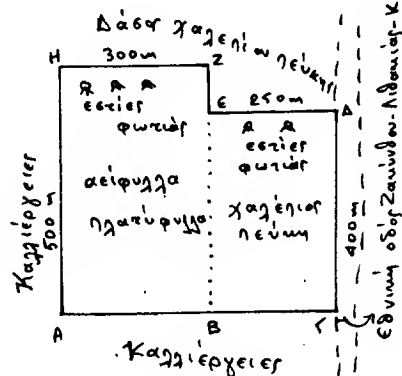 Δάσος χαλεπίου πεύκης
Η
300m
Ζ
Ε
250m
Δ
εστίες
φωτιάς
εστίες
φωτιάς
αείφυλλα
πλατύφυλλα
χαλέπιος
πεύκη
Καλλιέργειες
500m
400m
Εθνική οδός Ζακύνθου-Λιθακιάς-Κ
Α
Β
Γ
Καλλιέργειες